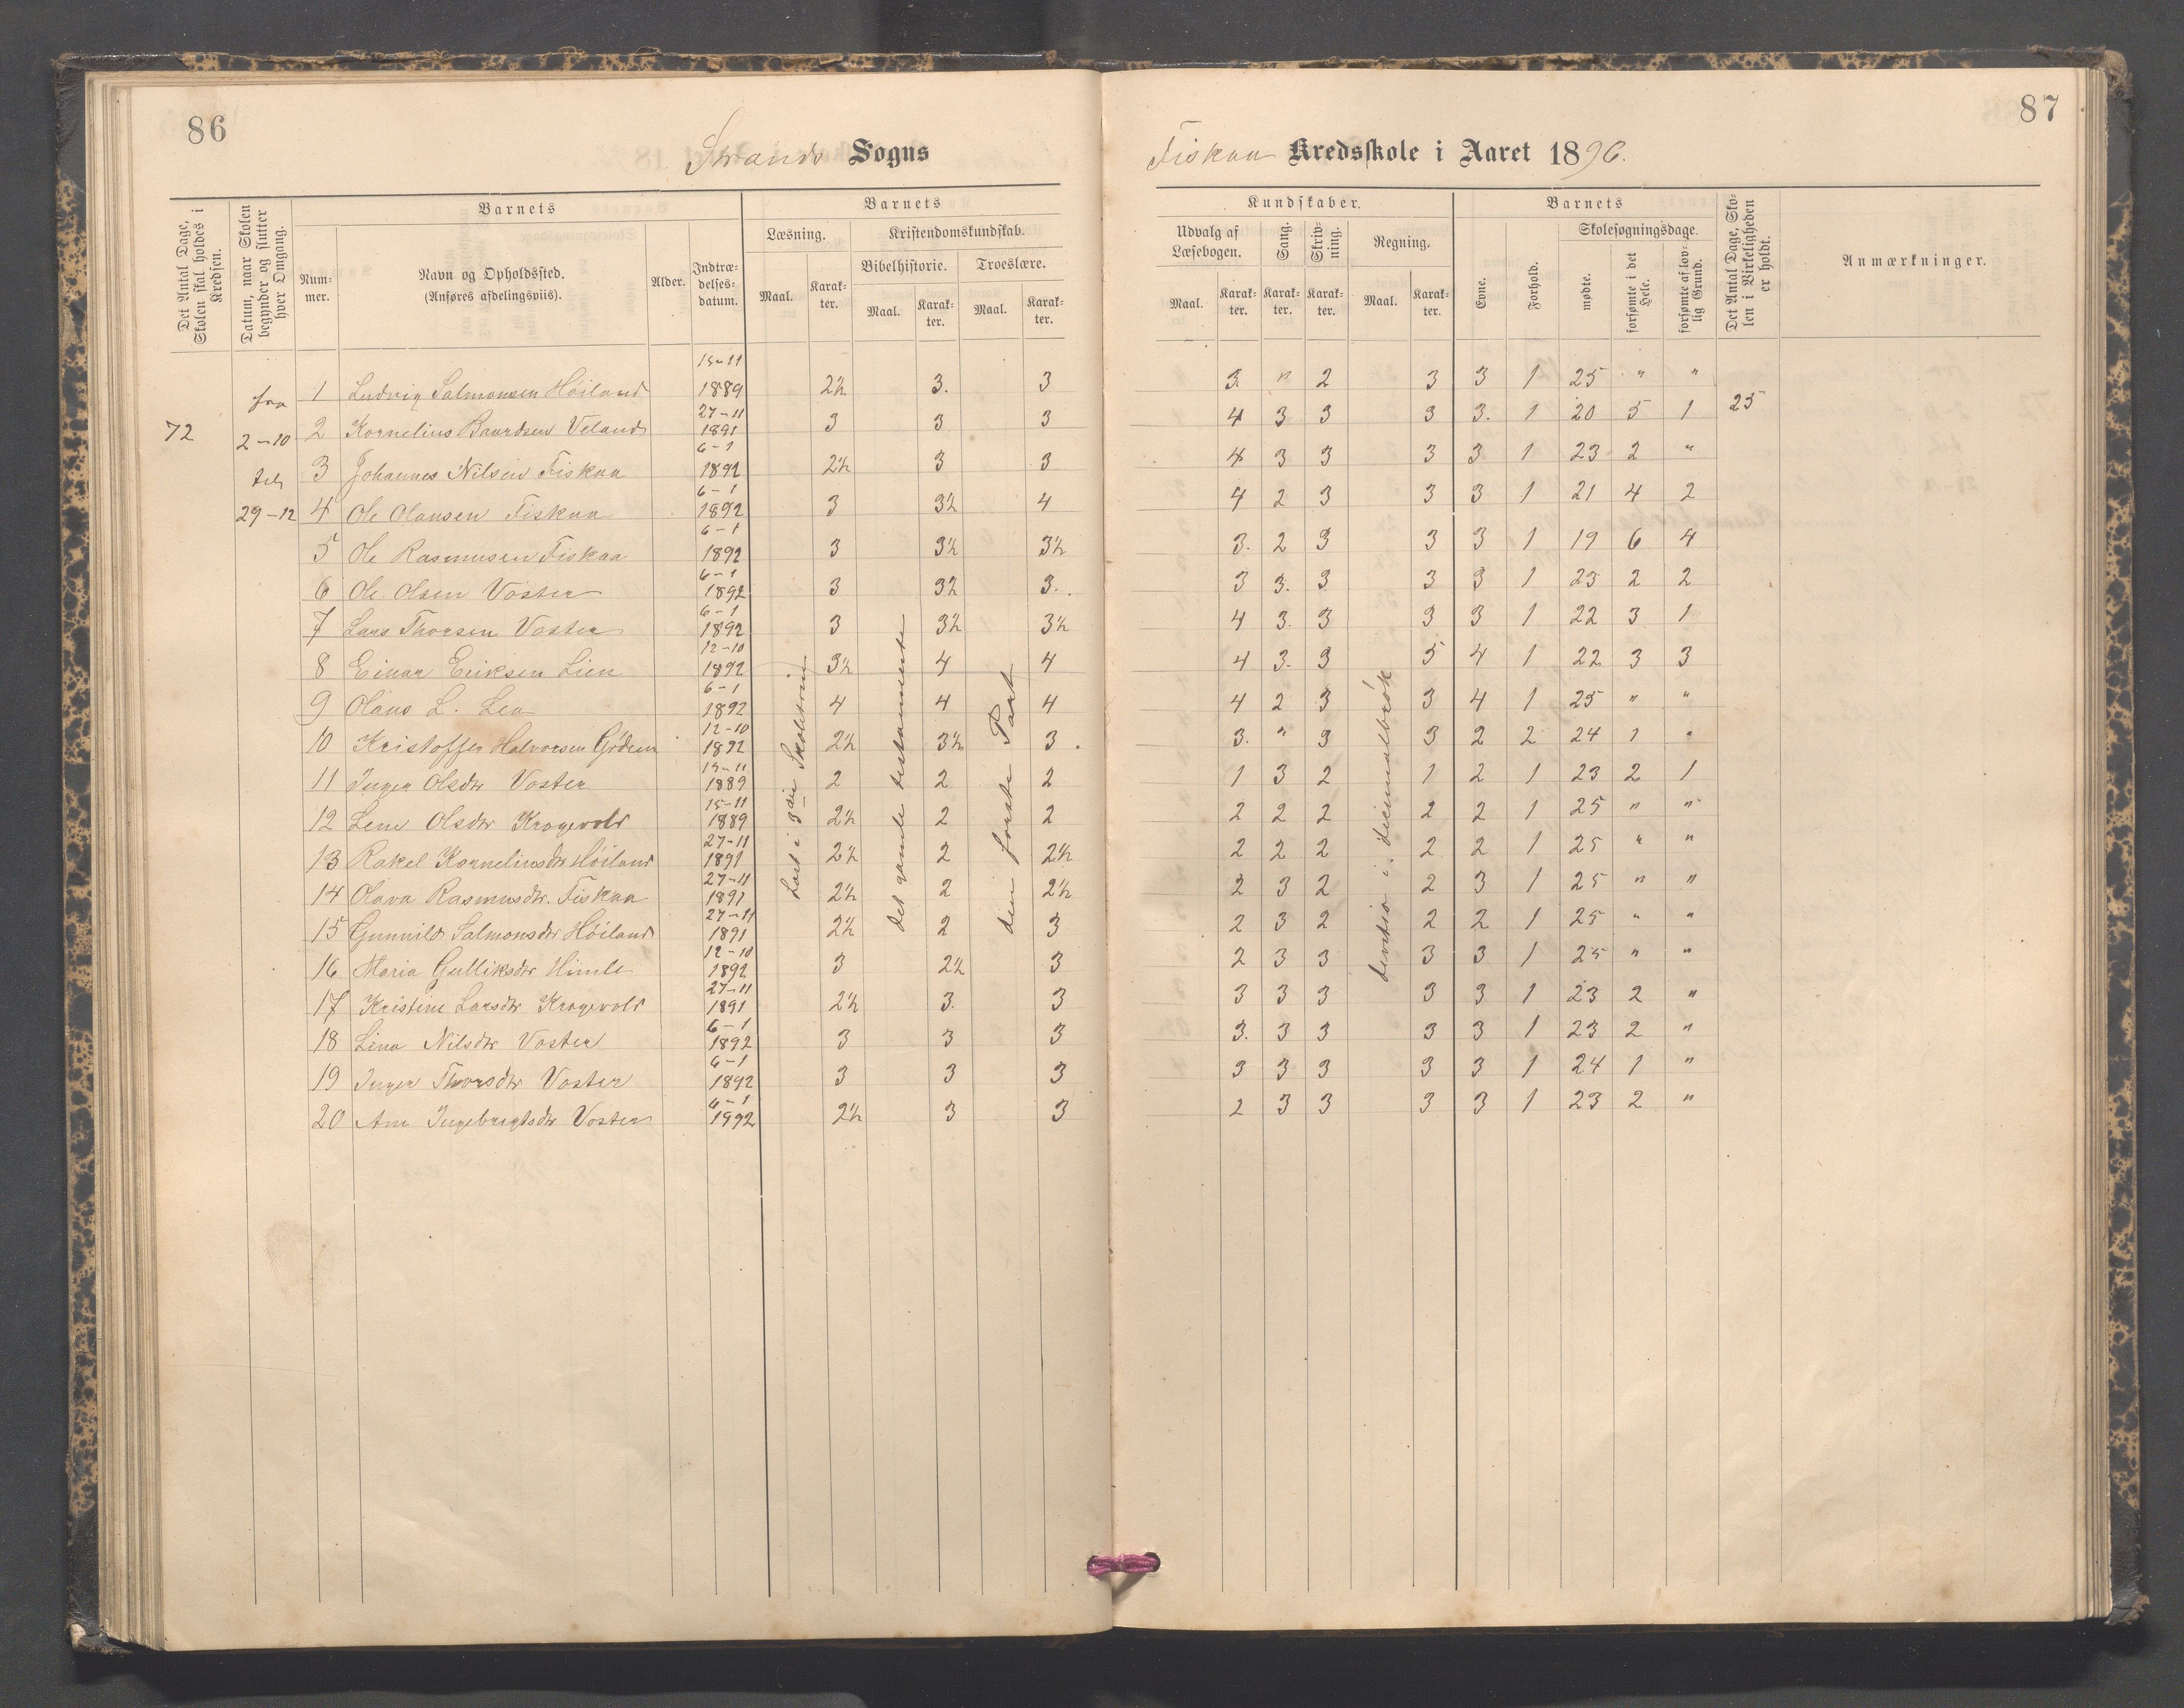 86
Strands Sogns
Det Antal Dage, Skolen skal holdes i Kredsen.
Datum, naar Skolen begynder og slutter hver Omgang.
Barnets
Nummer.
Navn og Opholdssted.
(Anføres afdelingsviis).
Alder.
Indtrædelsesdatum.
Barnets
Læsning.
Kristendomskundskab.
Bibelhistorie.
Troeslære.
Maal.
Karakter.
Maal.
Karakter.
Maal.
Karakter.
72
fra
2-10
til
29-12
1 Ludvig Salmonsen Höiland 15-11 1889 2½ 3. 3
2 Kornelius Baardsen Veland 27-11 1891 3 3 3
3 Johannes Nilsen Fiskaa 6-1 1892 2½ 3 3
4 Ole Olausen Fiskaa 6-1 1892 3 3½ 4
5 Ole Rasmusen Fiskaa 6-1 1892 3 3½ 3½
6 Ole Olsen Voster 6-1 1892 3 3½ 3.
7 Lars Thorsen Voster 6-1 1892 3 3½ 3½
8 Einar Eriksen Lien 12-10 1892 3½ 4 4
9 Olaus L. Lea 6-1 1892 4 4 4
10 Kristoffer Halvorsen Grödem 12-10 1892 2½ 3½ 3.
11 Inger Olsdtr Voster 15-11 1889 2 2 2
12 Lene Olsdtr Krogevold 15-11 1889 2½ 2 2
13 Rakel Korneliusdtr Höiland 27-11 1891 2½ 2 2½
14 Olava Rasmusdtr. Fiskaa 27-11 1891 2½ 2 2½
15 Gunnild Salmonsdtr Höiland 27-11 1891 2½ 2 3
16 Maria Gulliksdtr Himle 12-10 1892 3 2½ 3
17 Kristine Larsdtr Krogevold 27-11 1891 2½ 3. 3
18 Lina Nilsdtr Voster 6-1 1892 3 3 3
19 Inger Thorsdtr Voster 6-1 1892 3 3 3
20 Ane Ingebrigtsdtr Voster 6-1 1992 2½ 3 3
Læst i 3die Skoletrin
det gamle testamente
den förste Part
87
Fiskaa Kredsskole i Aaret 1896.
Kundskaber.
Udvalg af Læsebogen.
Sang.
Skrivning.
Regning.
Maal.
Karakter.
Karakter.
Karakter.
Maal.
Karakter.
Barnets
Evne.
Forhold.
Skolesøgningsdage.
mødte.
forsømte i det Hele.
forsømte af lovlig Grund.
Det Antal Dage, Skolen i Virkeligheden er holdt.
Anmærkninger.
3. " 2 3 3 1 25 " "
4 3 3 3 3. 1 20 5 1 25
4 3 3 3 3 1 23 2 "
4 2 3 3 3 1 21 4 2
3. 2 3 3 3 1 19 6 4
3 3. 3 3 3 1 23 2 2
4 3. 3 3 3 1 22 3 1
4 3. 3 5 4 1 22 3 3
4 2 3 3 4 1 25 " "
3. " 3 3 2 2 24 1 "
1 3 2 1 2 1 23 2 1
2 2 2 2 2 1 25 " "
2 2 2 2 2 1 25 " "
2 3 2 2 3 1 25 " "
2 3 2 2 2 1 25 " "
2 3 3 3 3 1 25 " "
3 3 3 3 3 1 23 2 "
3. 3 3 3 3 1 23 2 "
3 3 3 3 3 1 24 1 "
2 3 3 3 3 1 23 2 "
i decimalbrök